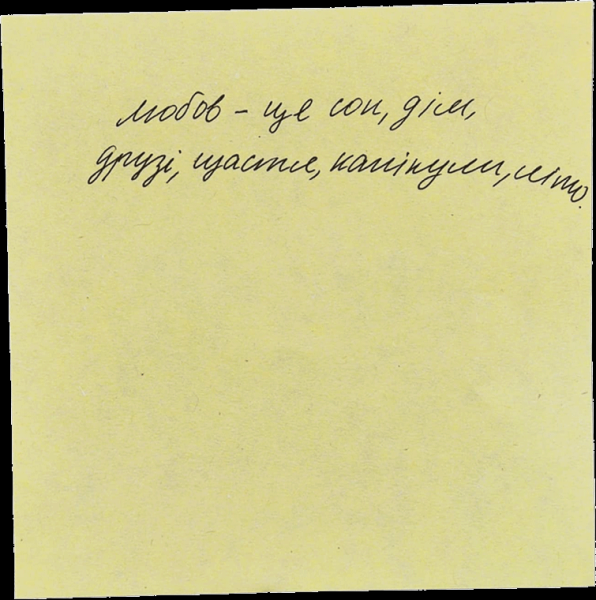 любов - це сон, дім,
друзі, щастя, канікули, літо.